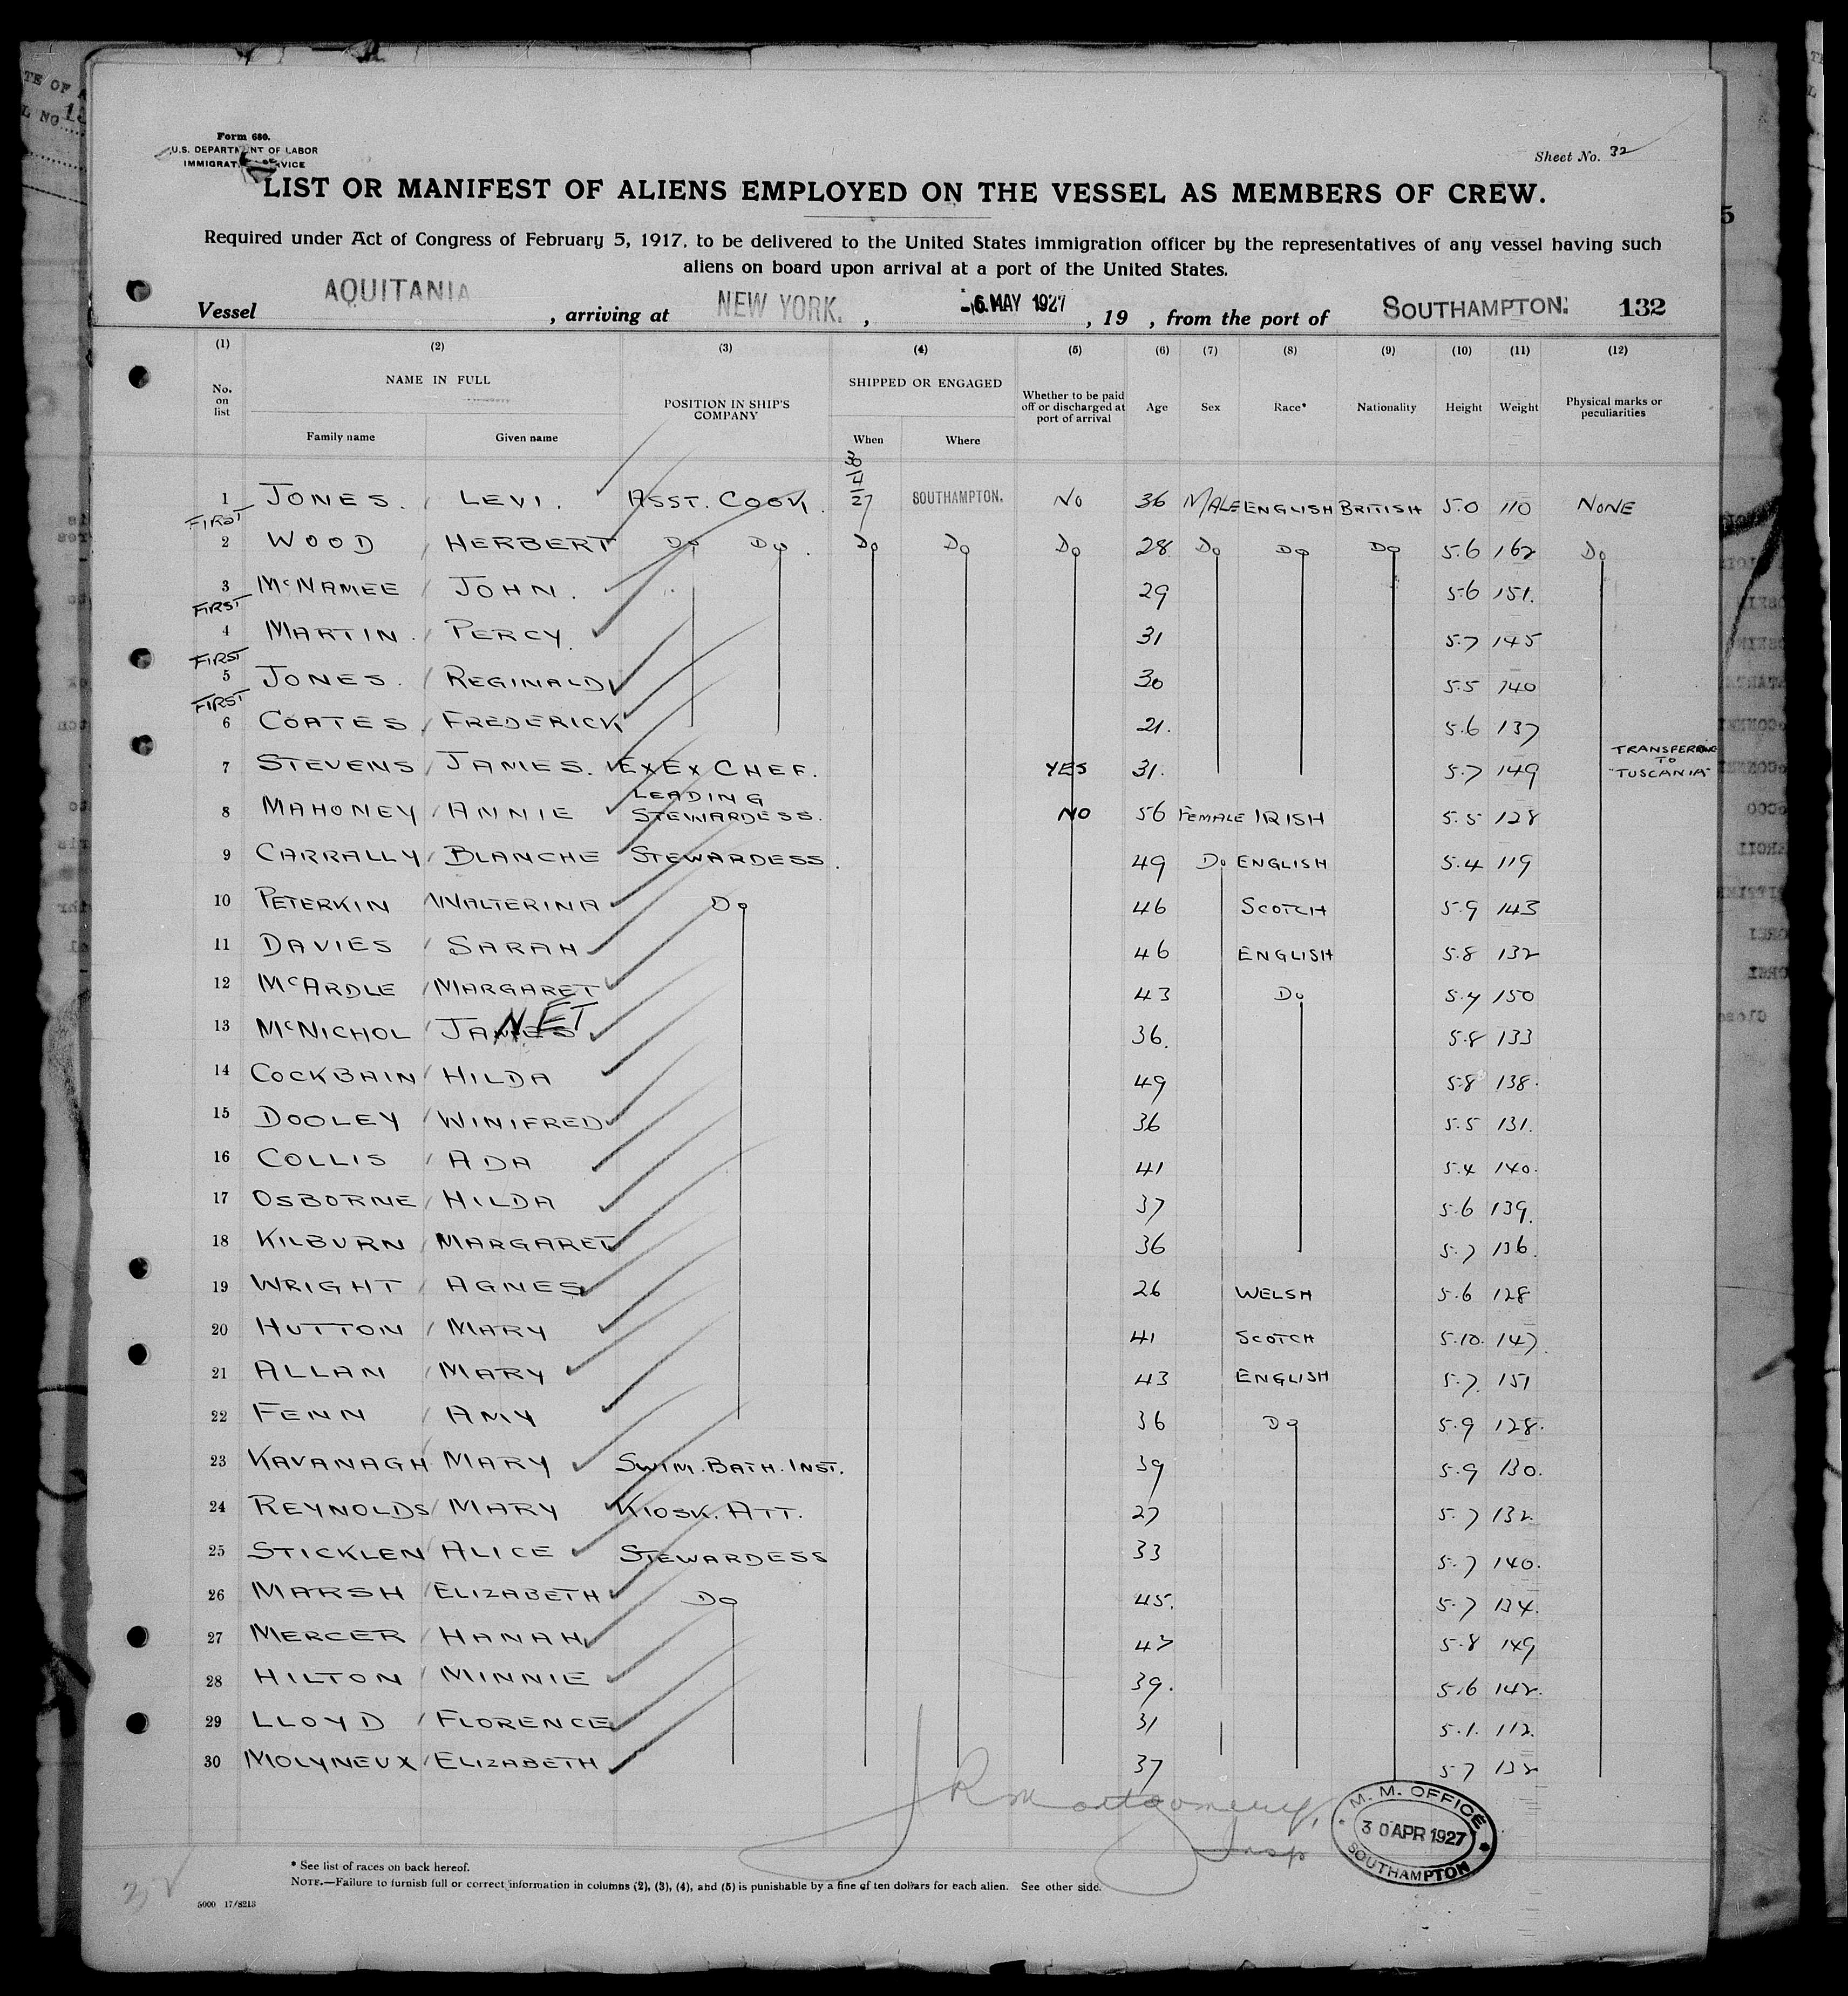 Form 680.
U.S. DEPARTMENT OF LABOR
IMMIGRAT SERVICE
Sheet No. 32
LIST OR MANIFEST OF ALIENS EMPLOYED ON THE VESSEL AS MEMBERS OF CREW.
Required under Act of Congress of February 5, 1917, to be delivered to the United States immigration officer by the representatives of any vessel having such
aliens on board upon arrival at a port of the United States.
Vessel AQUITANIA, arriving at NEW YORK., -6 MAY 1927, 19 , from the port of SOUTHAMPTON. 132
(1) (2) (3) (4) (5) (6) (7) (8) (9) (10) (11) (12)
No. on list NAME IN FULL Family name Given name POSITION IN SHIP'S COMPANY SHIPPED OR ENGAGED When Where Whether to be paid off or discharged at port of arrival Age Sex Race* Nationality Height Weight Physical marks or peculiarities
1 JONES. LEVI. ASST. COOK. 27 SOUTHAMPTON. NO 36 MALE ENGLISH BRITISH 5.0 110 NONE
FIRST
2 WOOD HERBERT Do Do. Do Do Do 28 Do Do Do 5.6 162 Do
3 McNAMEE JOHN. 29 5.6 151.
FIRST
4 MARTIN. PERCY. 31 5.7 145
FIRST
5 JONES. REGINALD 30 5.5 140
FIRST
6 COATES. FREDERICK 21. 5.6 137
7 STEVENS JAMES. EXEX CHEF. YES 31. 5.7 149 TRANSFERRING TO "TUSCANIA"
8 MAHONEY ANNIE LEADING STEWARDESS. NO 56 FEMALE IRISH 5.5 128
9 CARRALLY BLANCHE STEWARDESS. 49 Do ENGLISH 5.4 119
10 PETERKIN WALTERINA Do 46 SCOTCH 5.9 143
11 DAVIES SARAH 46 ENGLISH 5.8 132
12 McARDLE MARGARET 43 Do 5.4 150
13 McNICHOL JAMES NET 36. 5.8 133
14 COCKBAIN HILDA 49 5.8 138.
15 DOOLEY WINIFRED 36 5.5 131.
16 COLLIS ADA 41 5.4 140.
17 OSBORNE HILDA 37 5.6 139.
18 KILBURN MARGARET 36 5.7 136.
19 WRIGHT AGNES 26 WELSH 5.6 128
20 HUTTON MARY 41 SCOTCH 5.10. 147.
21 ALLAN MARY 43 ENGLISH 5.7. 151
22 FENN AMY 36 Do 5.9 128.
23 KAVANAGH MARY SWIM. BATH. INST. 39 5.9 130.
24 REYNOLDS MARY KIOSK. ATT. 27 5.7 132.
25 STICKLEN ALICE STEWARDESS 33 5.7 140.
26 MARSH ELIZABETH Do 45. 5.7 134.
27 MERCER HANAH 47 5.8 149
28 HILTON MINNIE 39. 5.6 142.
29 LLOYD FLORENCE 31 5.1. 112.
30 MOLYNEUX ELIZABETH 37 5.7 132
J R Montgomery, Insp
M. M. OFFICE
30 APR 1927
SOUTHAMPTON
* See list of races on back hereof.
NOTE.—Failure to furnish full or correct information in columns (2), (3), (4), and (5) is punishable by a fine of ten dollars for each alien. See other side.
5000 17/8213